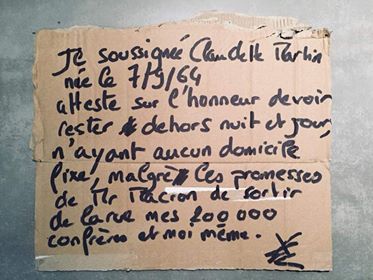 Je soussignée Claudette Martin
née le 7/9/64
atteste sur l'honneur devoir
rester dehors nuit et jour,
n'ayant aucun domicile
fixe, malgré les promesses
de Mr Macron de sortir
de la rue mes 200 000
confrères et moi même.